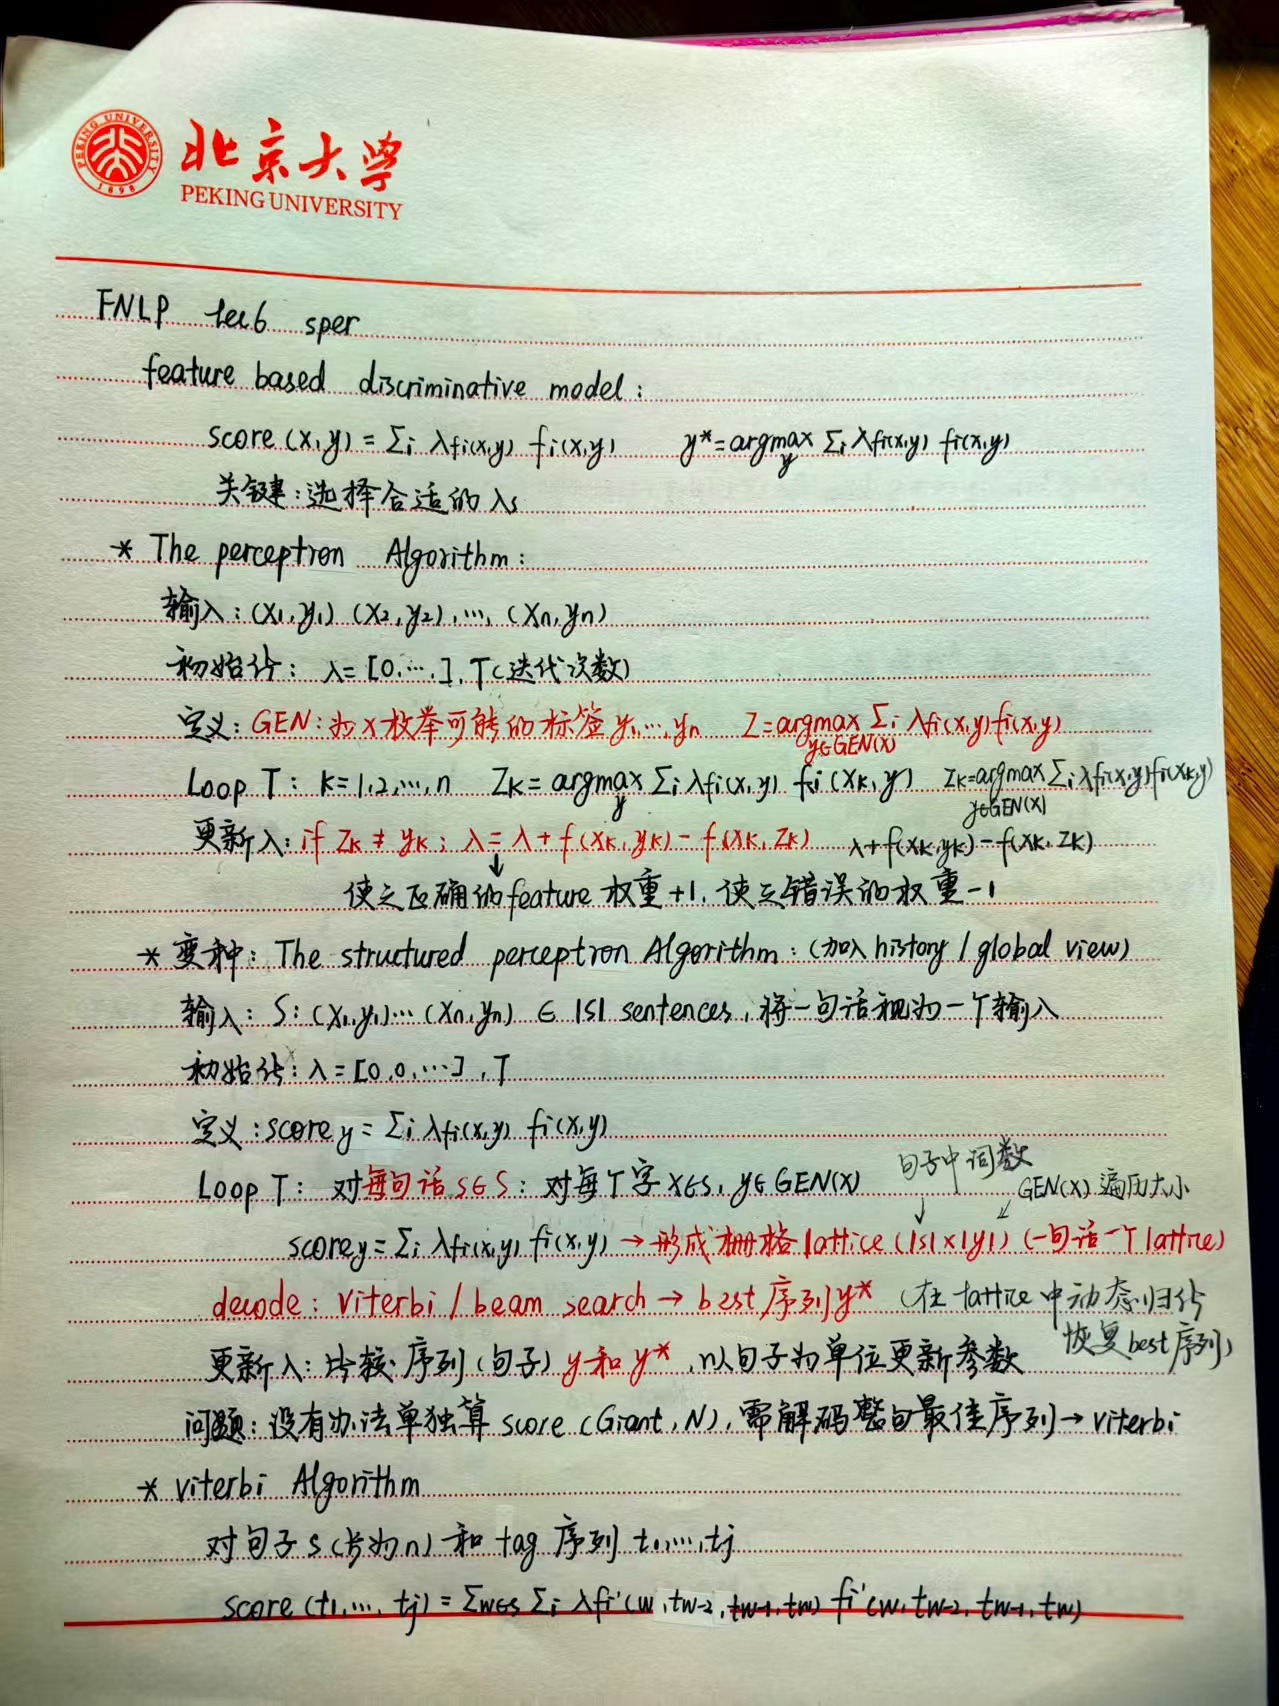 北京大学
PEKING UNIVERSITY
PEKING UNIVERSITY
1898
FNLP lec6 sper
feature based discriminative model:
score(x,y) = Σi λfi(x,y) fi(x,y)   y*=argmax Σi λfi(x,y) fi(x,y)
y
关键:选择合适的λs
* The perceptron Algorithm:
输入:(x1,y1) (x2,y2),…, (xn,yn)
初始化: λ=[0,…,],T(迭代次数)
定义:GEN:为x枚举可能的标签y1,…,yn   Z=argmax Σi λfi(x,y)fi(x,y)
y∈GEN(x)
Loop T: k=1,2,…,n   Zk=argmax Σi λfi(x,y) fi(xk,y)   Zk=argmax Σi λfi(x,y)fi(xk,y)
y   y∈GEN(x)
更新λ:if Zk≠yk; λ=λ+f(xk,yk)-f(xk,Zk)   λ+f(xk,yk)-f(xk,Zk)
↓
使之正确的feature权重+1,使之错误的权重-1
* 变种:The structured perceptron Algorithm:(加入history/global view)
输入:S:(x1,y1)…(xn,yn) ∈ |S| sentences,将一句话视为一个输入
初始化:λ=[0,0,…],T
定义:score y=Σi λfi(x,y) fi(x,y)
Loop T: 对每句话s∈S:对每个字x∈s,y∈GEN(x)   句子中词数
GEN(x)遍历大小
score y=Σi λfi(x,y) fi(x,y)→形成栅格lattice(|s|×|y|)(一句话一个lattice)
decode:viterbi/beam search→best序列y*(在lattice中动态归化
恢复best序列)
更新λ:比较序列(句子)y和y*,以句子为单位更新参数
问题:没有办法单独算score(Giant,N),需解码整句最佳序列→viterbi
* viterbi Algorithm
对句子s(长为n)和tag序列t1,…,tj
score(t1,…,tj)=Σw∈s Σi λfi'(w,tw-2,tw-1,tw) fi'(w,tw-2,tw-1,tw)